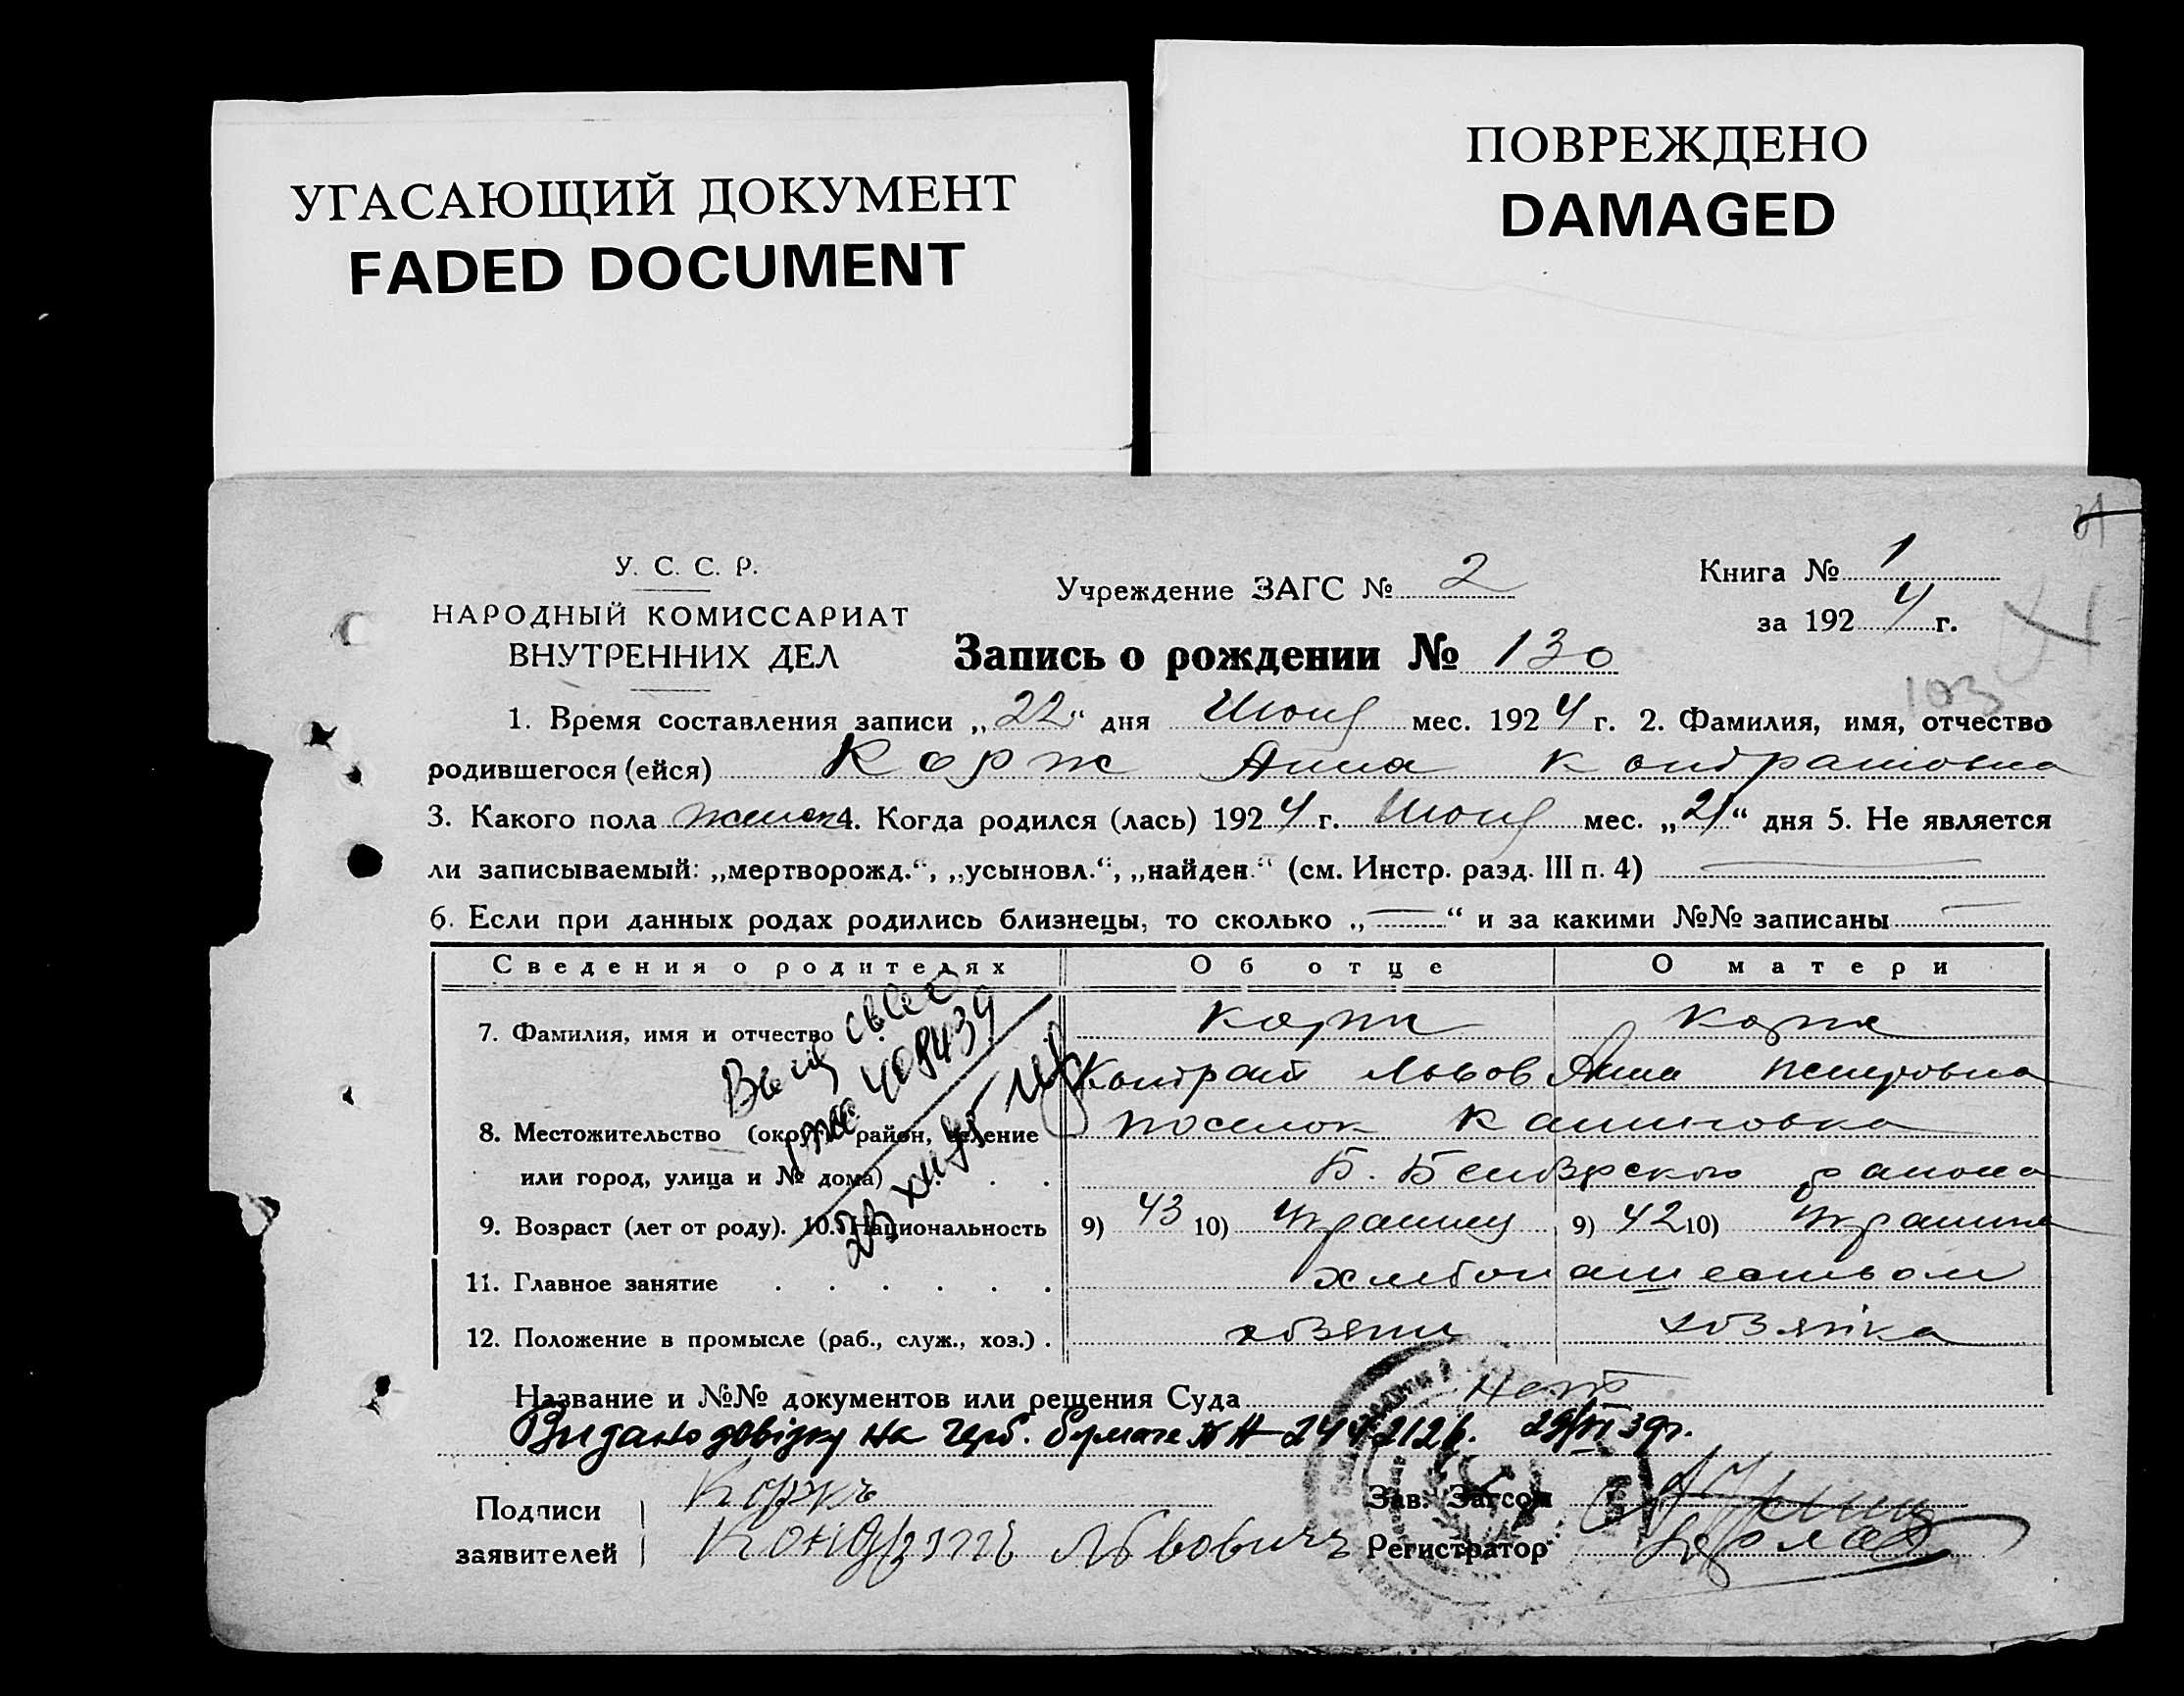 УГАСАЮЩИЙ ДОКУМЕНТ
FADED DOCUMENT
ПОВРЕЖДЕНО
DAMAGED
У. С. С. Р.
НАРОДНЫЙ КОМИССАРИАТ
ВНУТРЕННИХ ДЕЛ
Учреждение ЗАГС № 2
Книга № 1
за 1924 г.
Запись о рождении № 130
103
1. Время составления записи „22“ дня Июня мес. 1924 г. 2. Фамилия, имя, отчество
родившегося (ейся) Корж Анна Кондратовна
3. Какого пола женск 4. Когда родился (лась) 1924 г. Июня мес. „21“ дня 5. Не является
ли записываемый: „мертворожд.“, „усыновл.“, „найден.“ (см. Инстр. разд. III п. 4) —
6. Если при данных родах родились близнецы, то сколько „—“ и за какими №№ записаны —
Сведения о родителях Об отце О матери
7. Фамилия, имя и отчество Корж Корж
Контрат Львов Анна Петровна
8. Местожительство (округ, район, селение поселок Калиновка
или город, улица и № дома) Б. района
9. Возраст (лет от роду). 10. Национальность 9) 43 10) Украинец 9) 42 10) Украинка
11. Главное занятие хлебопашеством
12. Положение в промысле (раб., служ., хоз.) хозяин хозяйка
408439
Название и №№ документов или решения Суда Нет
Видано довідку на герб. бумаге 39р.
Подписи Коржъ
заявителей Кондратъ Львовичъ
Зав. Загсом
Регистратор